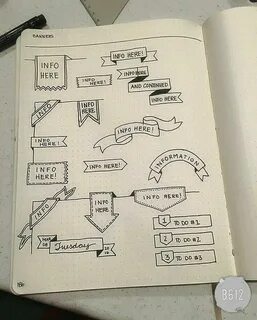 BANNERS
INFO
HERE
INFO HERE!
INFO HERE!
INFO HERE
AND CONTINUED
INFO HERE
INFO
INFO
HERE
INFO HERE!
INFO HERE!
INFO
HERE
INFO HERE!
INFORMATION
INFO
INFO
HERE!
INFO
HERE!
Tuesday
1 TO DO #1
2 TO DO #2
3 TO DO #3
B612